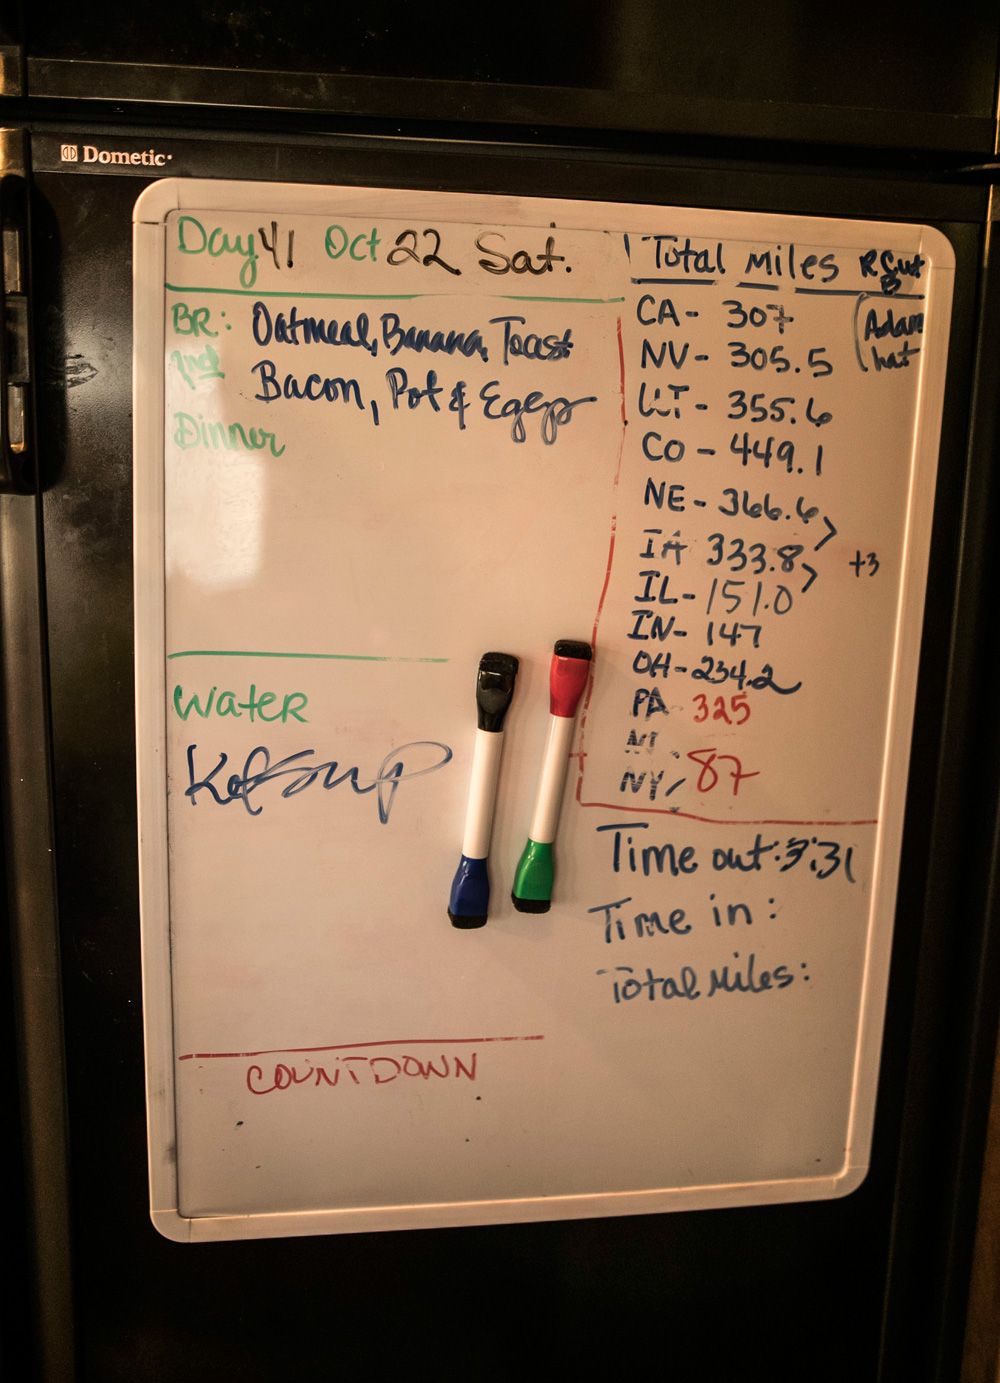 Dometic
Day 41 Oct 22 Sat.
BR: Oatmeal, Banana, Toast
2nd Bacon, Pot & Eggs
Dinner
Water
COUNTDOWN
Total Miles
CA- 307
NV- 305.5
UT- 355.6
CO- 449.1
NE- 366.6
IA 333.8
+3
IL- 151.0
IN- 147
OH- 234.2
PA 325
NY 87
Adam
hat
Time out: 3:31
Time in:
Total Miles: